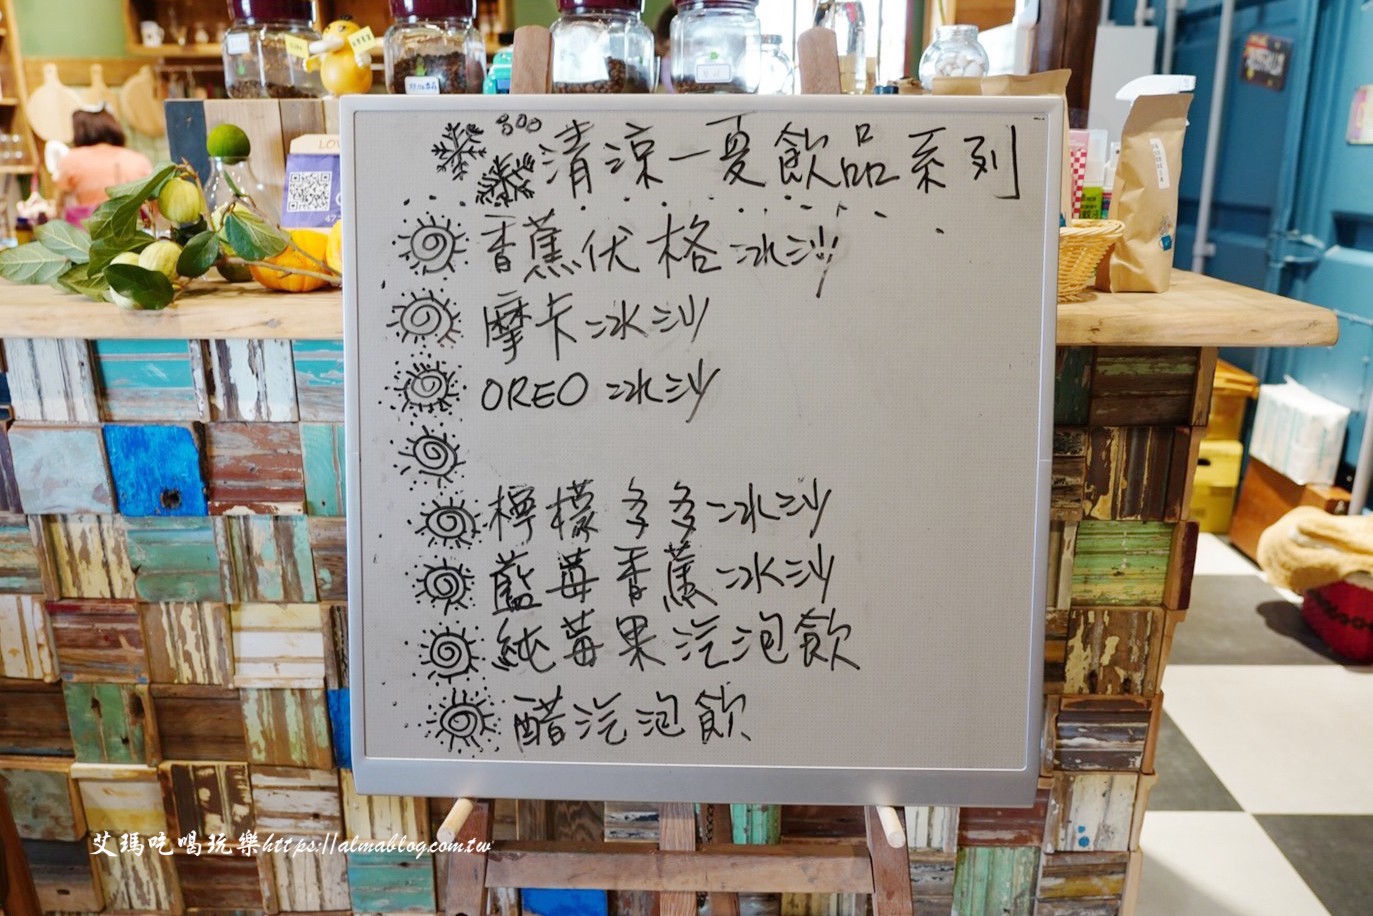 清涼一夏飲品系列
香蕉伏格冰沙
摩卡冰沙
OREO 冰沙
檸檬多多冰沙
藍莓香蕉冰沙
純莓果汽泡飲
醋汽泡飲
艾瑪吃喝玩樂https://almablog.com.tw